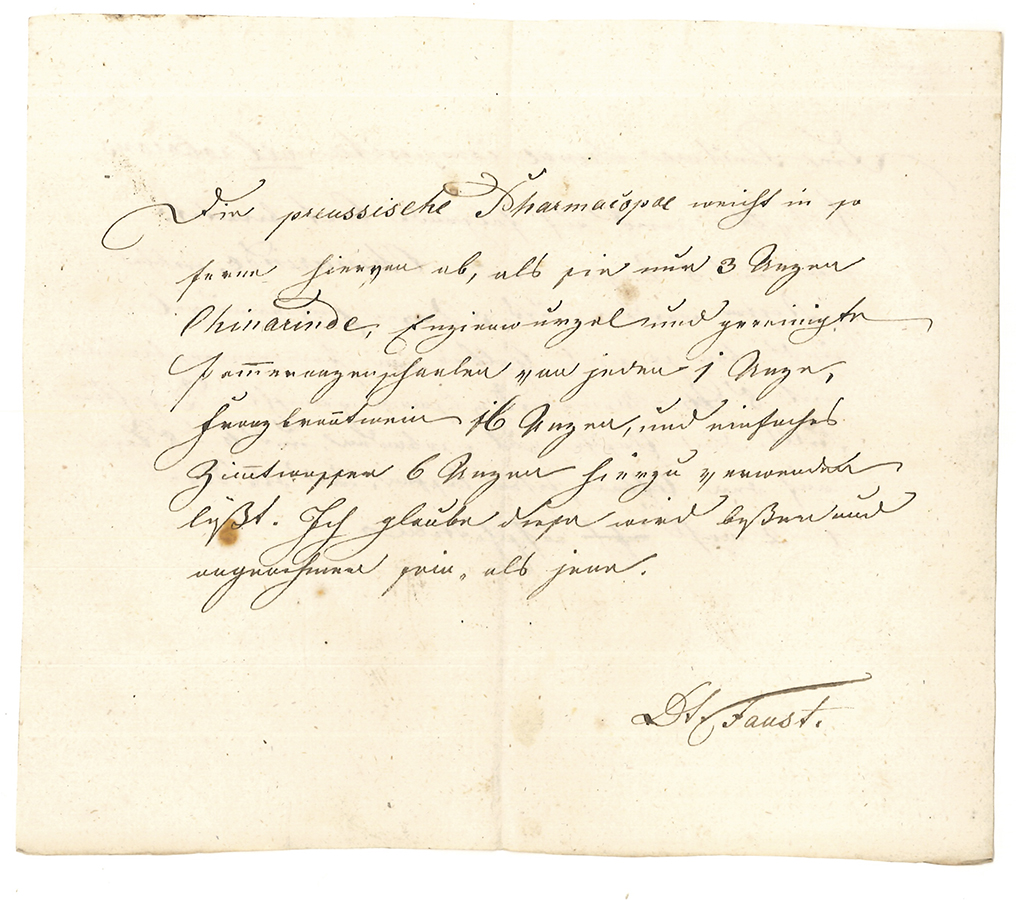 Die preussische Pharmacopoe weicht in so
ferne hiervon ab, als sie nur 3 Unzen
Chinarinde, Enzianwurzel und gereinigte
Pom̅eranzenschaalen von jeden 1 Unze,
Franzbran̅twein 16 Unzen, und einfaches
Zim̅twasser 6 Unzen hierzu verwenden
läßt. Ich glaube diese wird beßer und
angenehmer sein, als jene.
Dr Faust.